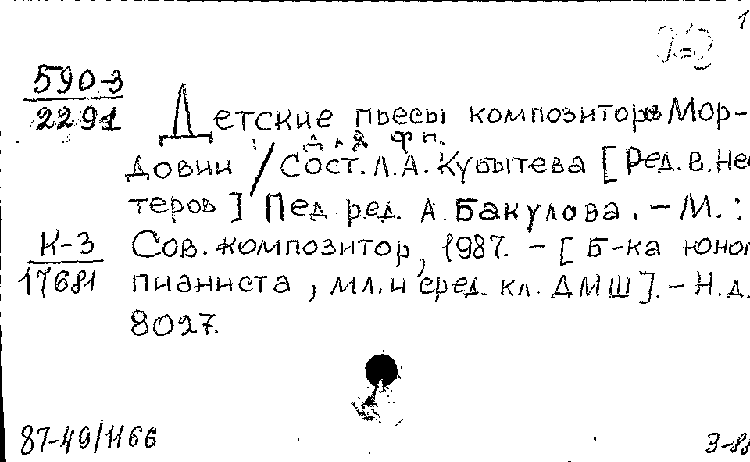 1
590-3
2291
Детские пьесы композиторов Мор-
для фп.
довии / Сост. Л.А. Кубытева [Ред. В. Нес
теров] Пед. ред. А. Бакулова. - М.:
К-3
17681
Сов. композитор, 1987. - [Б-ка юног
пианиста, мл. и сред. кл. ДМШ]. - Н.д.
8027.
87-49/1166
3-88